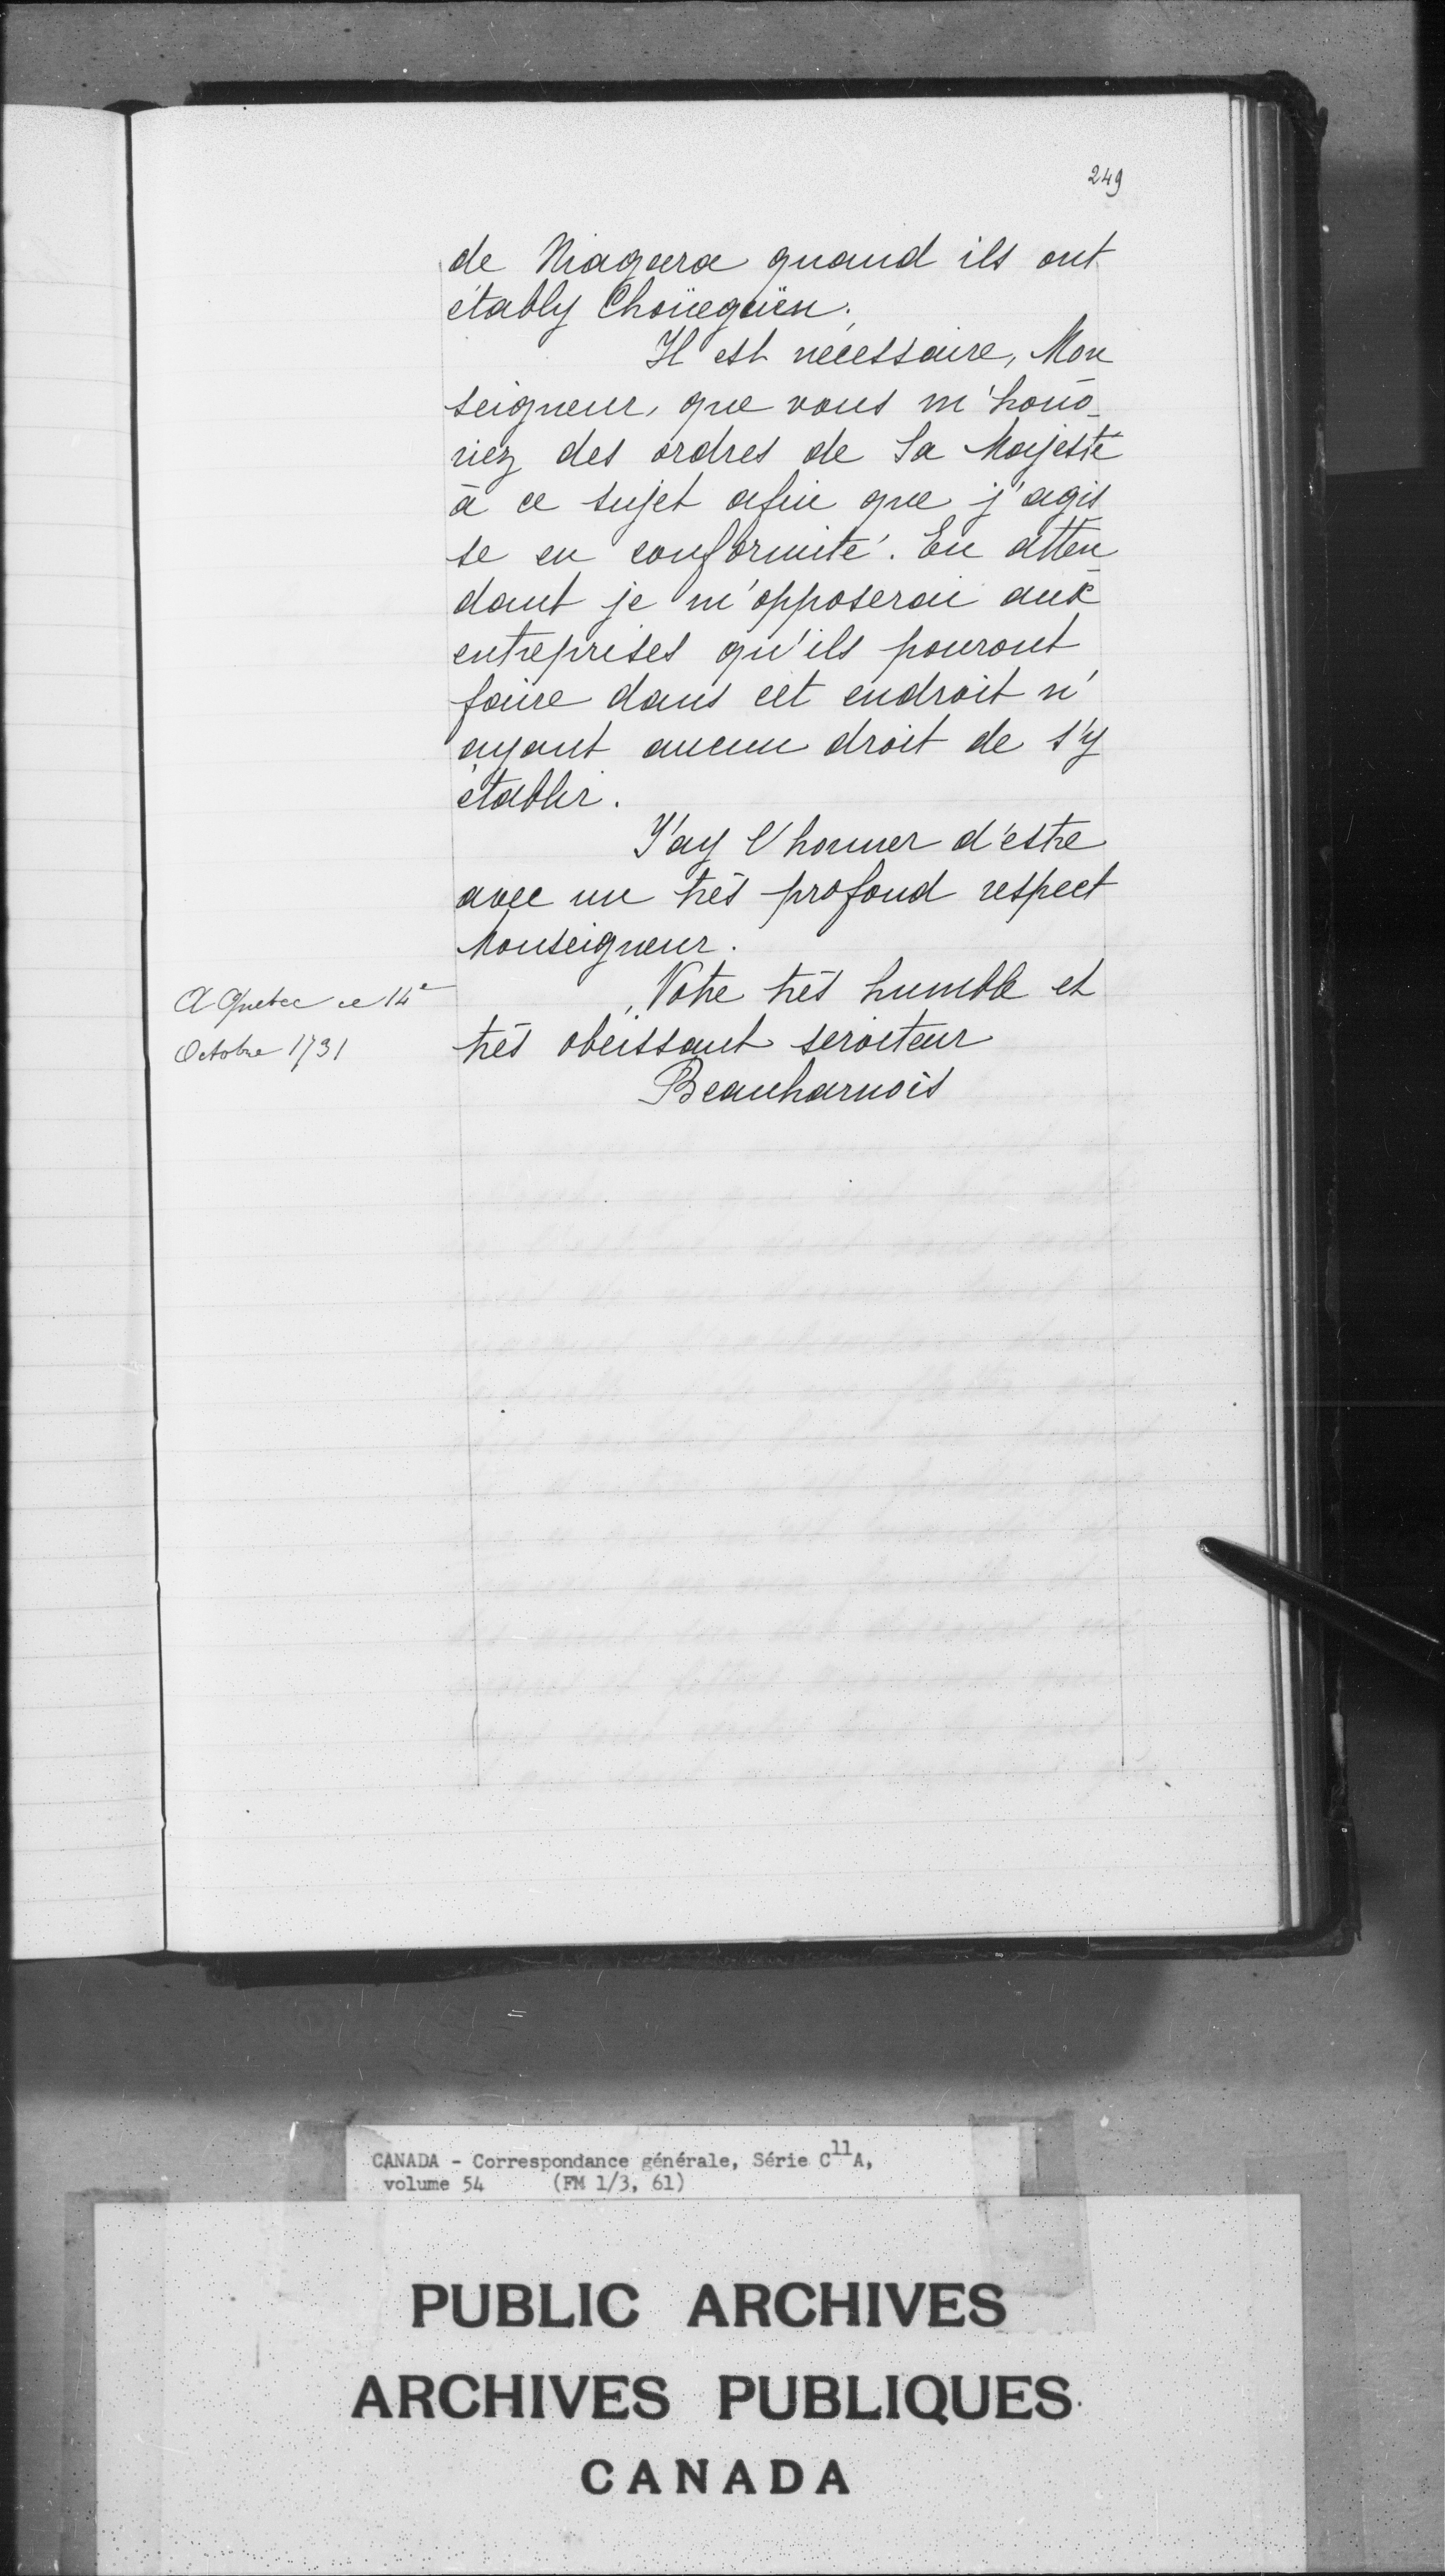 249
de Niagara quand ils ont
étably Choüegüen.
Il est necessaire, Mon
seigneur, que vous m'hono-
riez des ordres de Sa Majesté
à ce sujet afin que j'agis
se en conformité. En atten
dant je m'opposerai aux
entreprises qu'ils pouront
faire dans cet endroit n'
ayant aucun droit de s'y
établir.
J'ay l'honner d'estre
avec un très profond respect
Monseigneur.
Votre très humble et
très obeissant serviteur
Beauharnois
A Quebec ce 14e
Octobre 1731
CANADA - Correspondance générale, Série C11A,
volume 54 (FM 1/3, 61)
PUBLIC ARCHIVES
ARCHIVES PUBLIQUES
CANADA